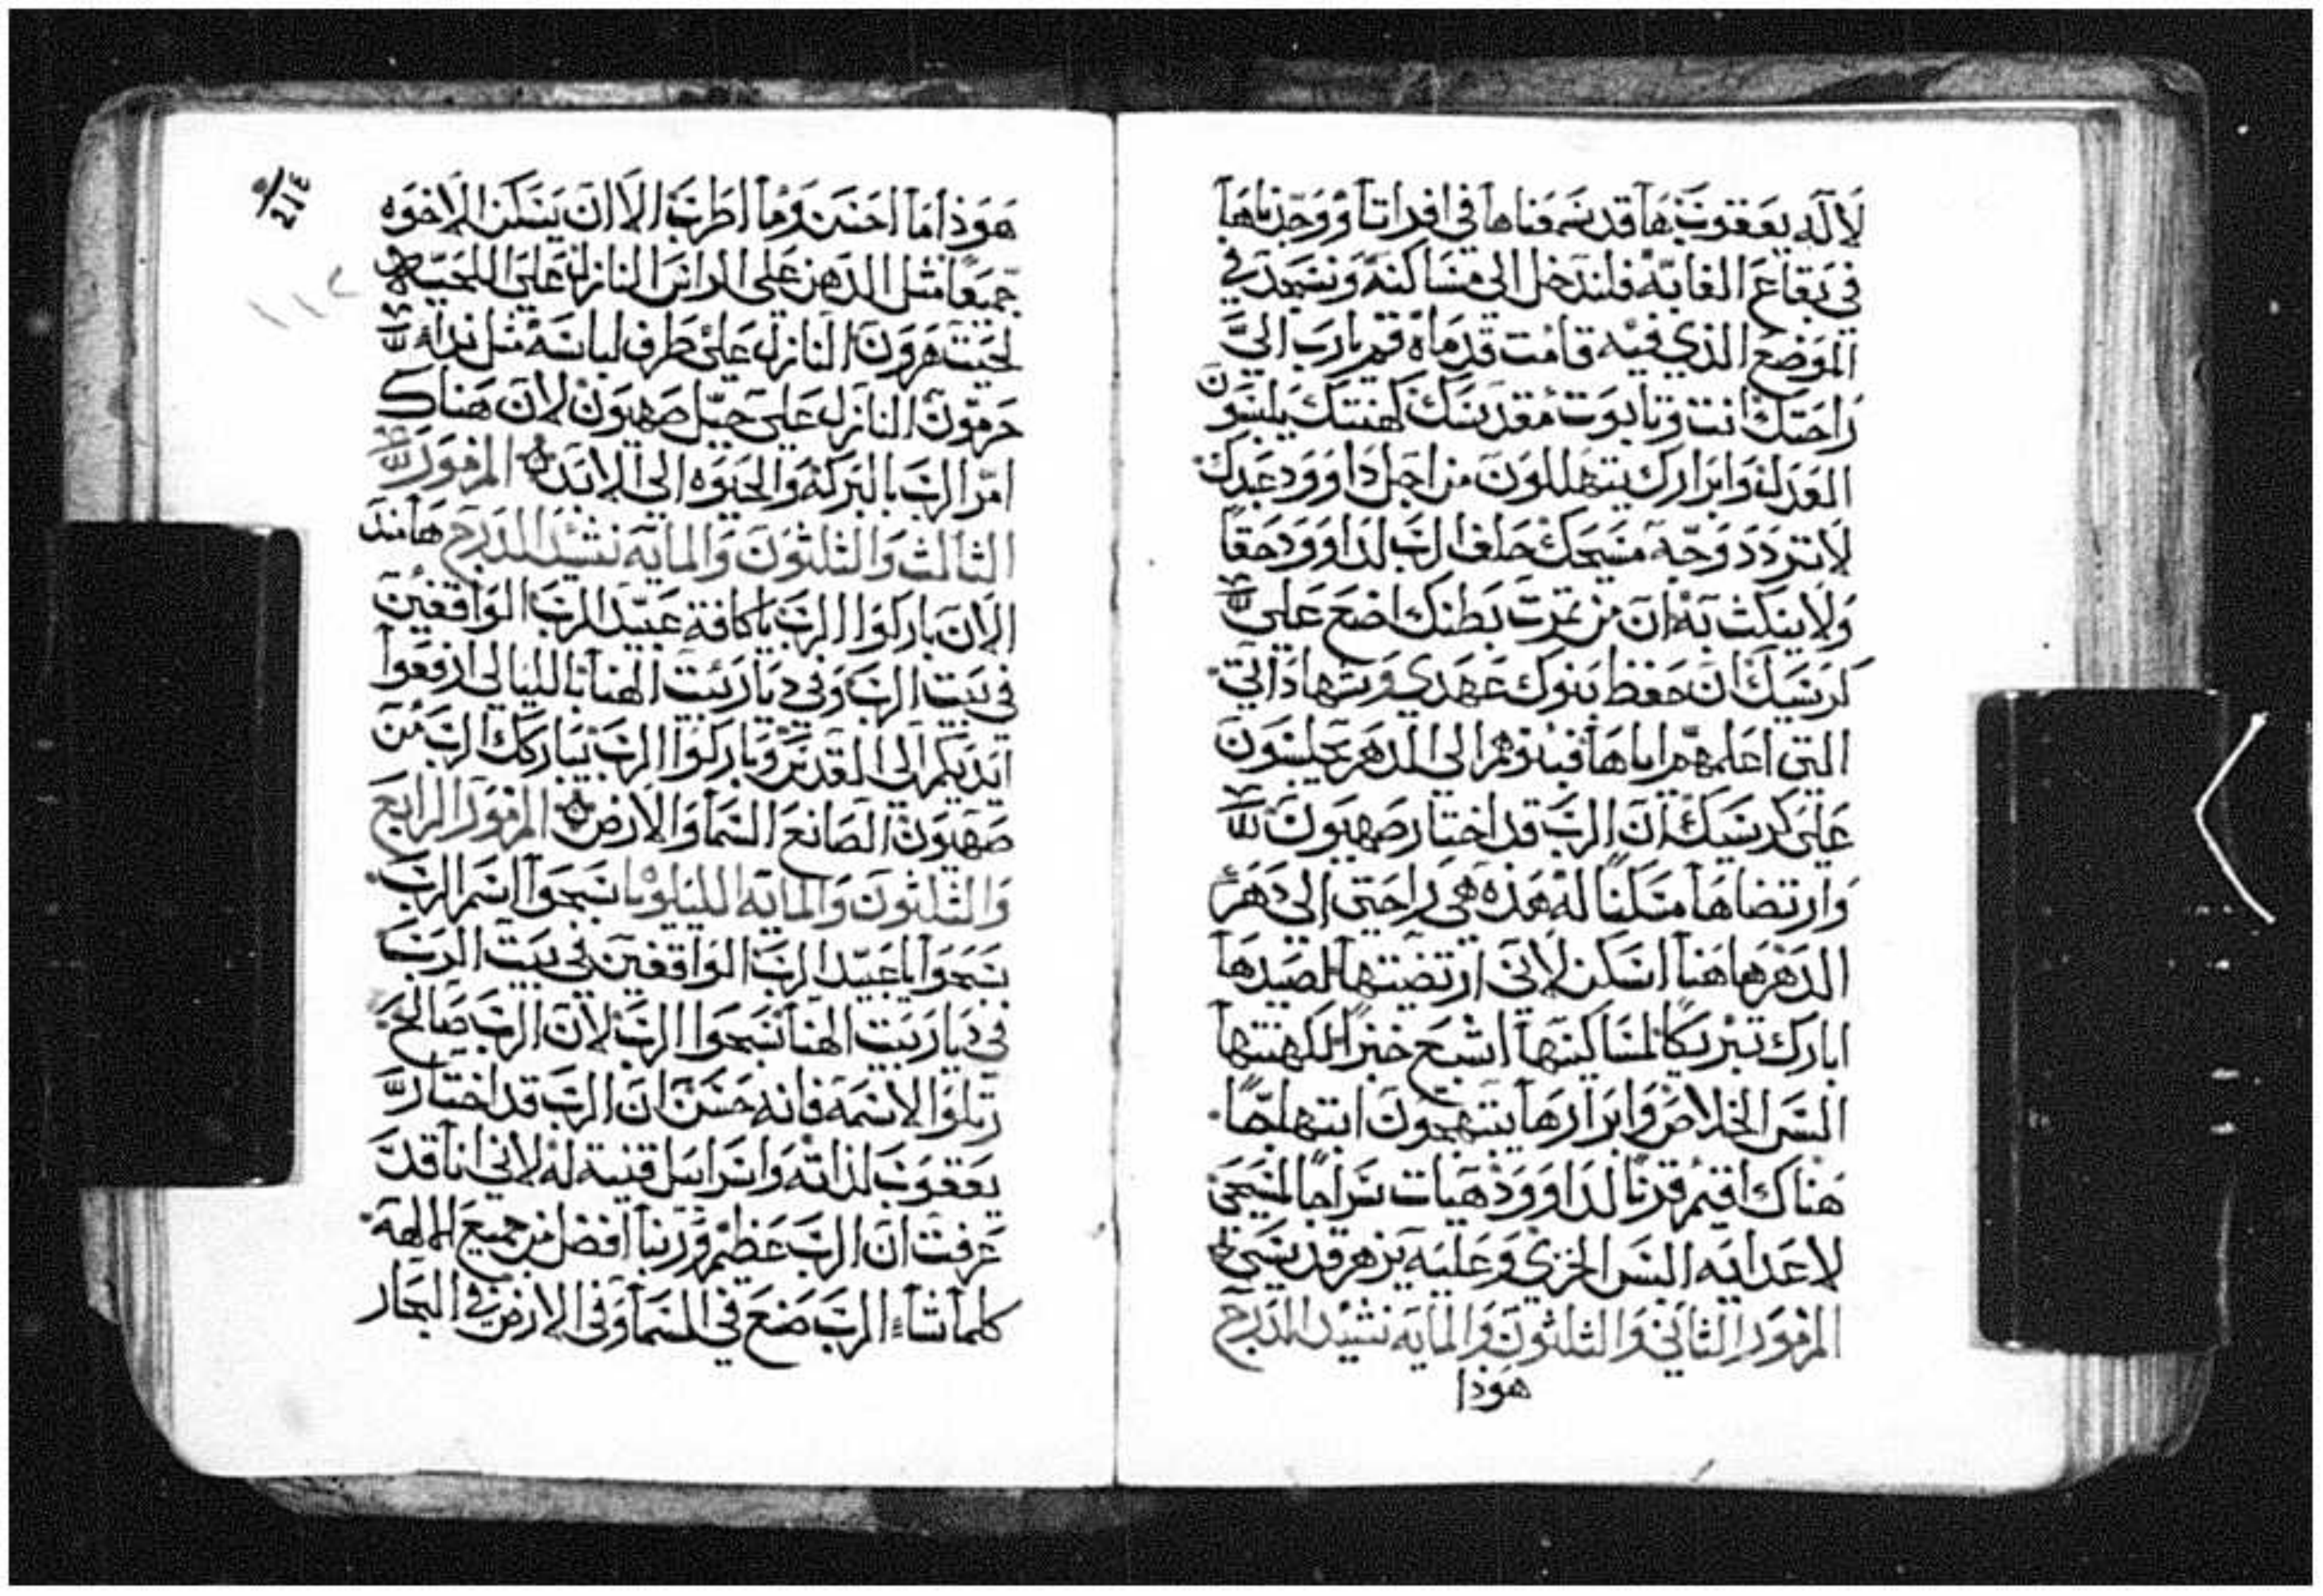 لاله يعقوب ها قد سمعناها في افراتا ووجدناها
في بقاع الغابه فلندخل الى مساكنه ونسجد في
الموضع الذي فيه قامت قدماه قم يارب الي
راحتك انت وتابوت مقدسك كهنتك يلبسون
العدل وابرارك يتهللون من اجل داوود عبدك
لا تردد وجه مسيحك حلف الرب لداوود حقا
ولا ينكث به ان من ثمرت بطنك اضع علي
كرسيك ان حفظ بنوك عهدي وشهاداتي
التي اعلمهم اياها فبنوهم الي الدهر يجلسون
علي كرسيك ان الرب قد اختار صهيون
وارتضاها مسكنا له هذه هي راحتي الي دهر
الدهر هاهنا اسكن لاني ارتضيتها لصيدها
ابارك تبريكا لمساكينها اشبع خبزا لكهنتها
البس الخلاص وابرارها يبتهجون ابتهاجا
هناك اقيم قرنا لداوود هيات سراجا لمسيحي
لاعدايه البس الخزي وعليه يزهر قدسي
المزمور الثاني والثلثون والمايه نشيد الدرج
هوذا
٢١٤
هوذا ما احسن وما اطرب الا ان يسكن الاخوه
جميعا مثل الدهن علي الراس النازل علي اللحيه
لحيت هرون النازل علي طرف لباسه مثل نداء
حرمون النازل علي جبل صهيون لان هناك
امر الرب بالبركه والحيوه الي الابد المزمور
الثالث والثلثون والمايه نشيد الدرج ها منذ
الان باركوا الرب يا كافة عبيد الرب الواقفين
في بيت الرب وفي ديار بيت الهنا بالليالي ارفعوا
ايديكم الي القدس وباركوا الرب يباركك الرب من
صهيون الصانع السما والارض المزمور الرابع
والثلثون والمايه الليلويا سبحوا اسم الرب
سبحوا يا عبيد الرب الواقفين في بيت الرب
في ديار بيت الهنا سبحوا الرب لان الرب صالح
رتلوا لاسمه فانه حسن ان الرب قد اختار
يعقوب لذاته واسراييل قنية له لاني انا قد
عرفت ان الرب عظيم وربنا افضل من جميع الالهه
كلما شاء الرب صنع في السما وفي الارض في البحار